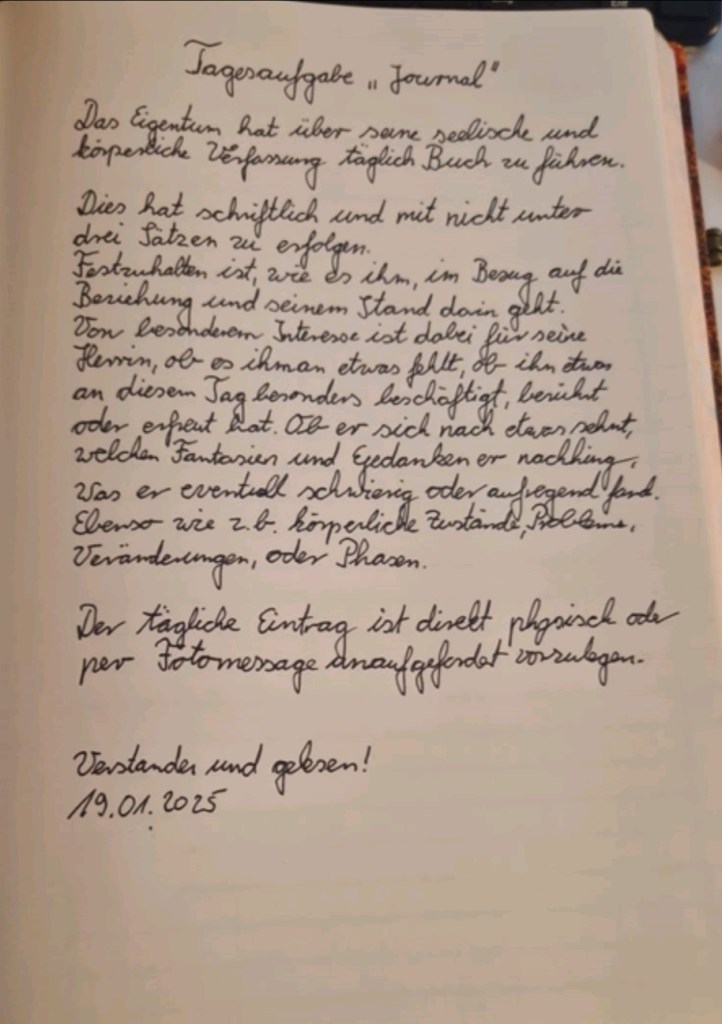 Tagesaufgabe „Journal"
Das Eigentum hat über seine seelische und
körperliche Verfassung täglich Buch zu führen.
Dies hat schriftlich und mit nicht unter
drei Sätzen zu erfolgen.
Festzuhalten ist, wie es ihm, im Bezug auf die
Beziehung und seinem Stand darin geht.
Von besonderem Interesse ist dabei für seine
Herrin, ob es ihm an etwas fehlt, ob ihn etwas
an diesem Tag besonders beschäftigt, berührt
oder erfreut hat. Ob er sich nach etwas sehnt,
welchen Fantasien und Gedanken er nachhing,
Was er eventuell schwierig oder aufregend fand.
Ebenso wie z.b. körperliche Zustände, Probleme,
Veränderungen, oder Phasen.
Der tägliche Eintrag ist direkt physisch oder
per Fotomessage unaufgefordert vorzulegen.
Verstanden und gelesen!
19.01.2025